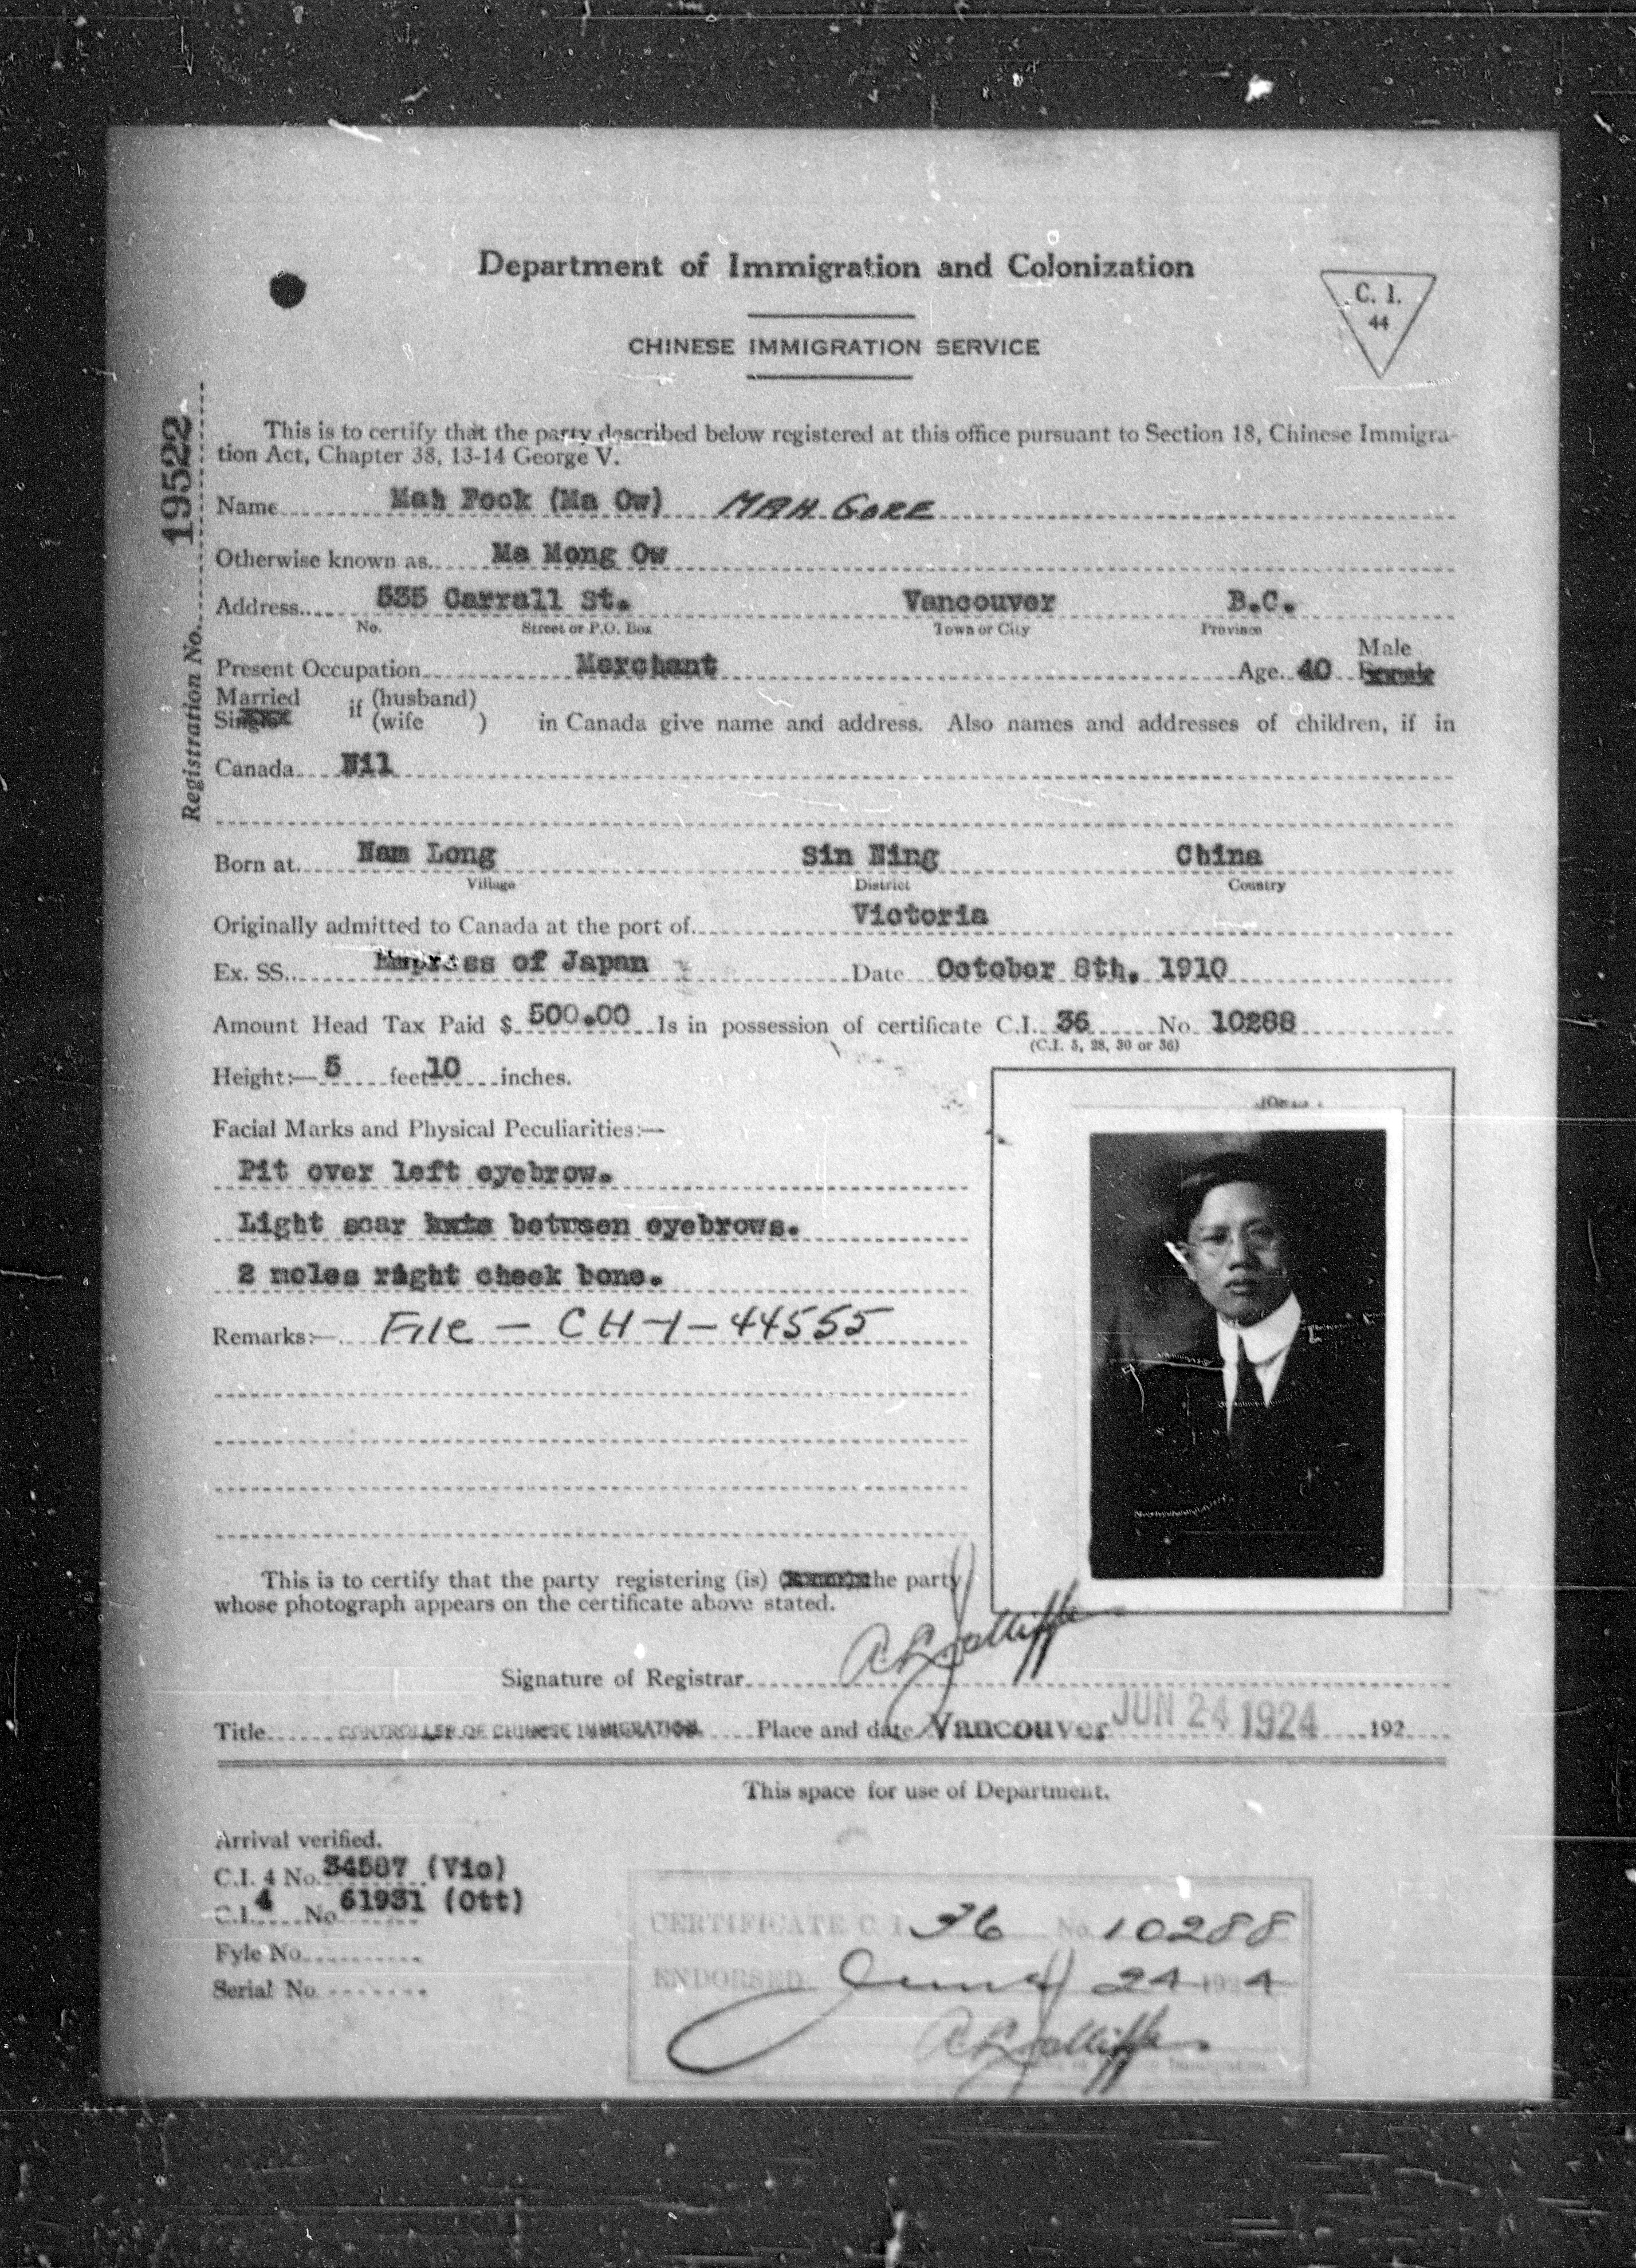 Department of Immigration and Colonization
C. I.
44
CHINESE IMMIGRATION SERVICE
Registration No. 19522
This is to certify that the party described below registered at this office pursuant to Section 18, Chinese Immigra-
tion Act, Chapter 38, 13-14 George V.
Name Mah Fock (Ma Ow) MAH GORE
Otherwise known as Ma Mong Ow
Address 535 Carrall St. Vancouver B.C.
No. Street or P.O. Box Town or City Province
Male
Present Occupation Merchant Age 40
Married if (husband)
Single (wife ) in Canada give name and address. Also names and addresses of children, if in
Canada Nil
Born at Nam Long Sin Ning China
Village District Country
Originally admitted to Canada at the port of Victoria
Ex. SS. Empress of Japan Date October 8th, 1910
Amount Head Tax Paid $ 500.00 Is in possession of certificate C.I. 36 No 10288
(C.I. 5, 28, 30 or 36)
Height:— 5 feet 10 inches.
Facial Marks and Physical Peculiarities:—
Pit over left eyebrow.
Light scar between eyebrows.
2 moles right cheek bone.
Remarks:— File - CH-1-44555
This is to certify that the party registering (is) the party
whose photograph appears on the certificate above stated.
Signature of Registrar A L Jolliffe
Title CONTROLLER OF CHINESE IMMIGRATION Place and date Vancouver JUN 24 1924 192
This space for use of Department.
Arrival verified.
C.I. 4 No. 34587 (Vic)
C.I. 4 No 61931 (Ott)
Fyle No
Serial No
CERTIFICATE C. I. 36 No 10288
ENDORSED June 24 1924
A L Jolliffe